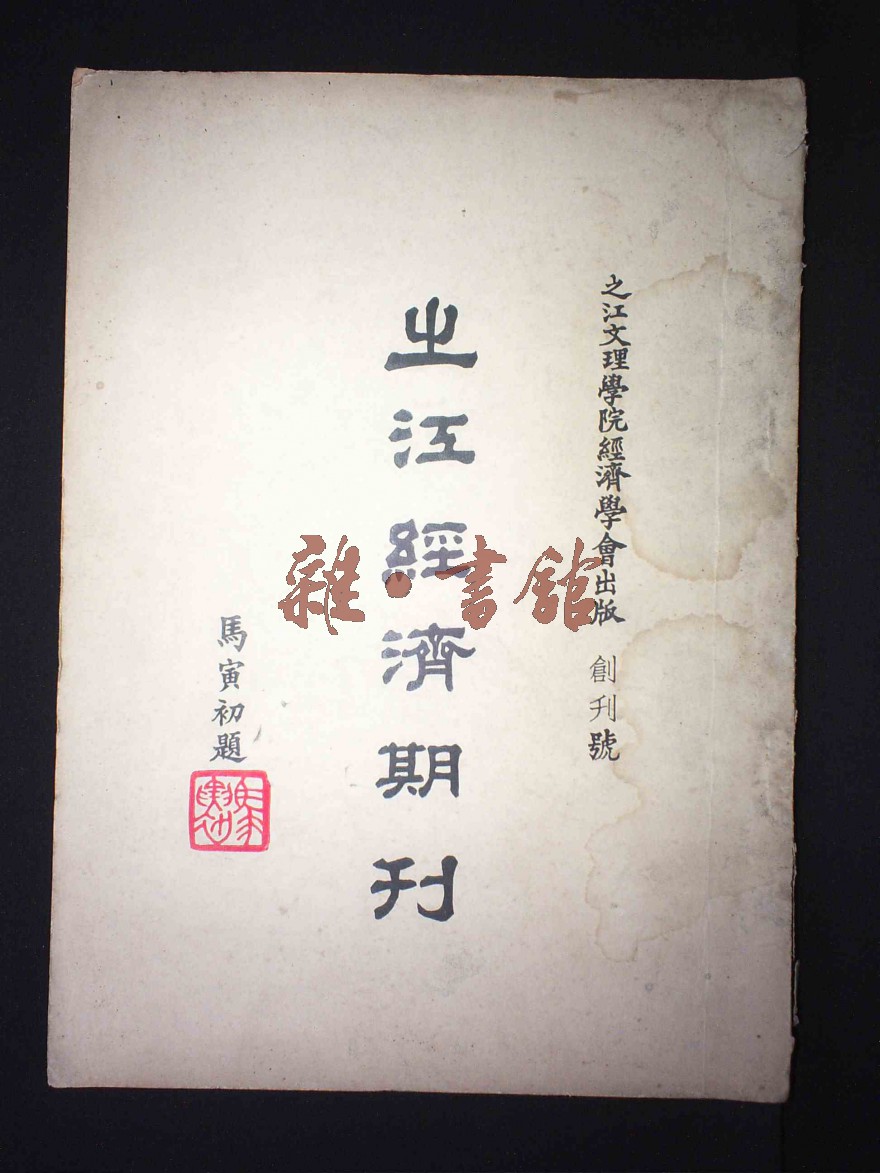 之江文理學院經濟學會出版 創刊號
之江經濟期刊
馬寅初題
馬寅初
雜·書館